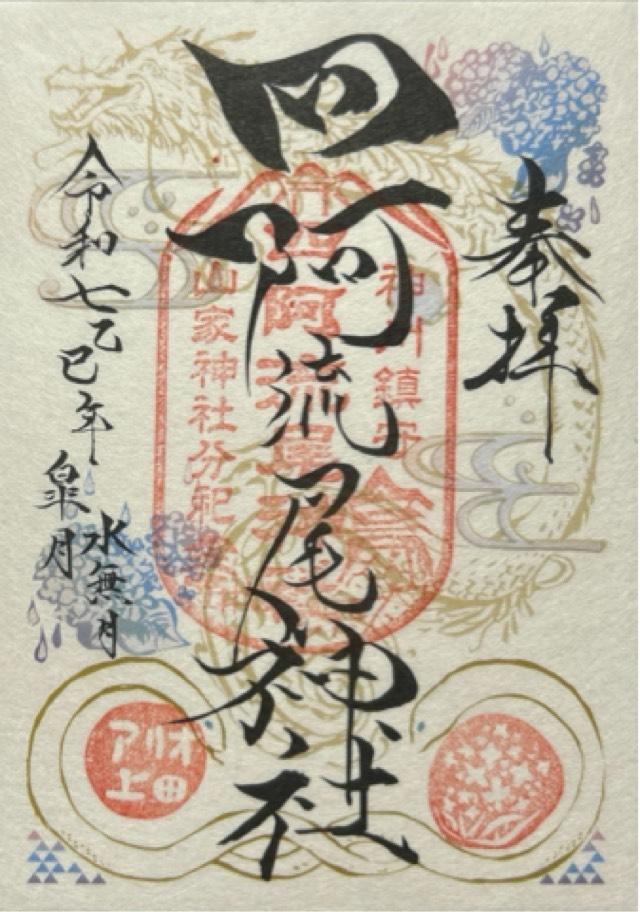 奉拝
四阿流尾神社
令和七乙巳年
皐月
水無月
神川鎮守
四阿流尾神社
山家神社分祀
アリオ
上田